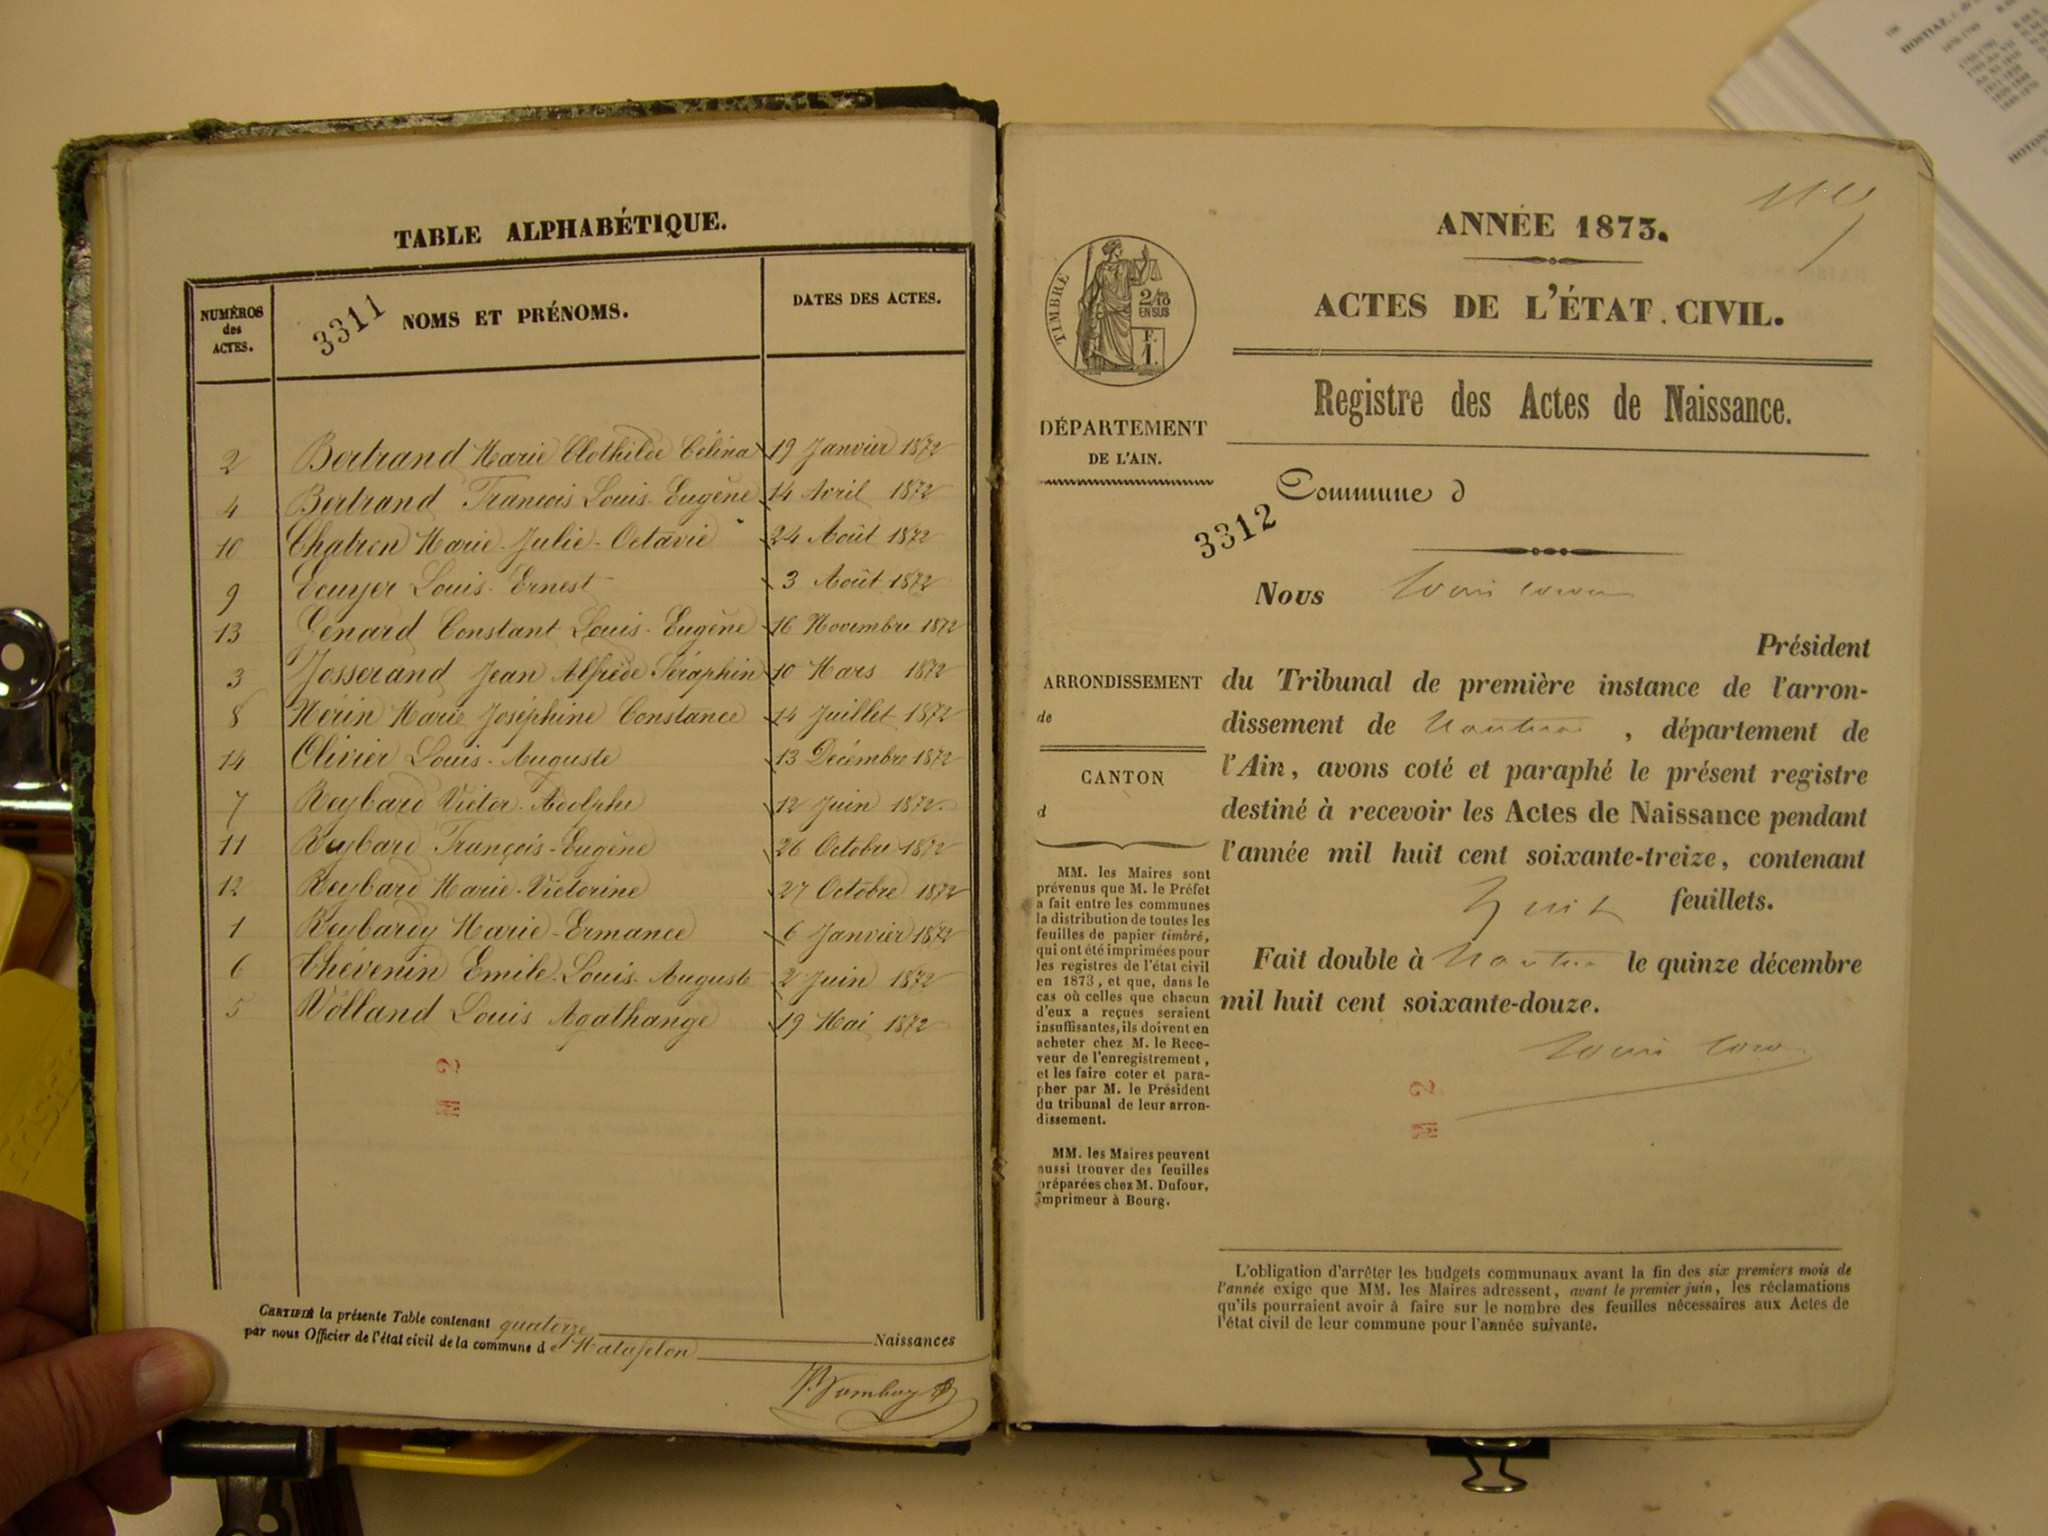 TABLE ALPHABÉTIQUE.
NUMÉROS
des
ACTES.
3311
NOMS ET PRÉNOMS.
DATES DES ACTES.
2 Bertrand Marie Clothilde Célina 19 Janvier 1872
4 Bertrand François Louis Eugène 14 Avril 1872
10 Chatron Marie Julie Octavie 24 Août 1872
9 Ecuyer Louis Ernest 3 Août 1872
13 Génard Constant Louis Eugène 16 Novembre 1872
3 Josserand Jean Alfrède Séraphin 10 Mars 1872
8 Nérin Marie Joséphine Constance 14 Juillet 1872
14 Olivier Louis Auguste 13 Décembre 1872
7 Reybard Victor Adolphe 12 Juin 1872
11 Reybard François Eugène 26 Octobre 1872
12 Reybard Marie Victorine 27 Octobre 1872
1 Reybardy Marie Ermance 6 Janvier 1872
6 Thévenin Emile Louis Auguste 2 Juin 1872
5 Volland Louis Agathange 19 Mai 1872
M 2
CERTIFIÉ la présente Table contenant quatorze Naissances
par nous Officier de l'état civil de la commune de Matafelon
ANNÉE 1873.
ACTES DE L'ÉTAT CIVIL.
Registre des Actes de Naissance.
TIMBRE
2/10
EN SUS
F.
1.
DÉPARTEMENT
DE L'AIN.
Commune d
3312
Nous
Président
ARRONDISSEMENT
de
CANTON
d
du Tribunal de première instance de l'arron-
dissement de Nantua, département de
l'Ain, avons coté et paraphé le présent registre
destiné à recevoir les Actes de Naissance pendant
l'année mil huit cent soixante-treize, contenant
huit feuillets.
Fait double à Nantua le quinze décembre
mil huit cent soixante-douze.
M 2
MM. les Maires sont
prévenus que M. le Préfet
a fait entre les communes
la distribution de toutes les
feuilles de papier timbré,
qui ont été imprimées pour
les registres de l'état civil
en 1873, et que, dans le
cas où celles que chacun
d'eux a reçues seraient
insuffisantes, ils doivent en
acheter chez M. le Rece-
veur de l'enregistrement,
et les faire coter et para-
pher par M. le Président
du tribunal de leur arron-
dissement.
MM. les Maires peuvent
aussi trouver des feuilles
préparées chez M. Dufour,
imprimeur à Bourg.
L'obligation d'arrêter les budgets communaux avant la fin des six premiers mois de
l'année exige que MM. les Maires adressent, avant le premier juin, les réclamations
qu'ils pourraient avoir à faire sur le nombre des feuilles nécessaires aux Actes de
l'état civil de leur commune pour l'année suivante.